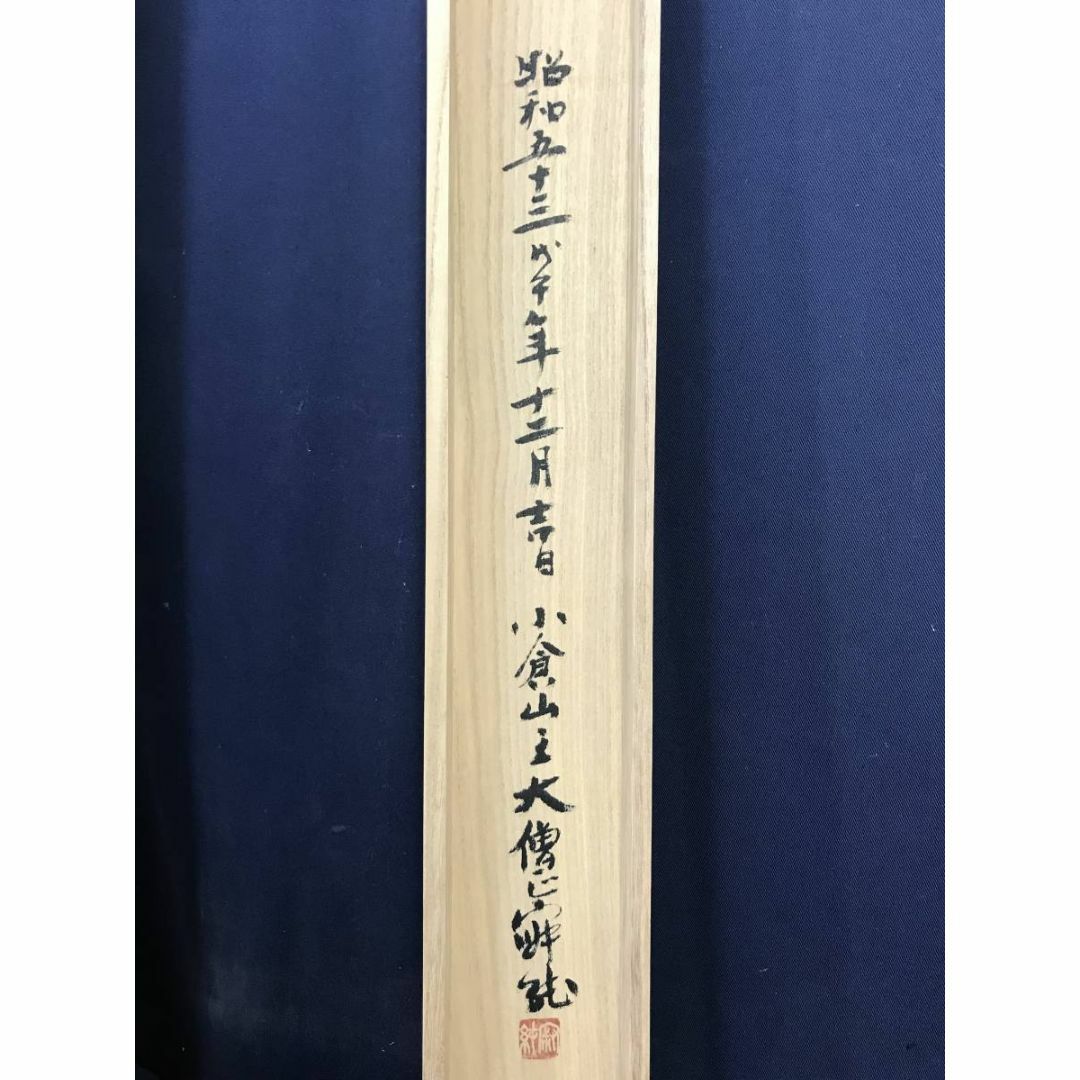 昭和五十三戊午年十二月吉日 小倉山主大僧正寂純
寂純